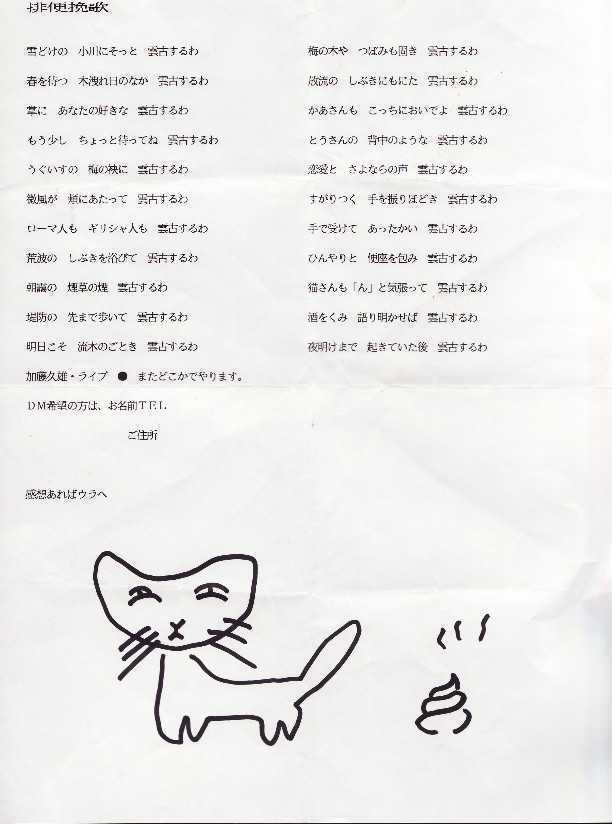 排便挽歌
雪どけの　小川にそっと　雲古するわ
春を待つ　木洩れ日のなか　雲古するわ
掌に　あなたの好きな　雲古するわ
もう少し　ちょっと待ってね　雲古するわ
うぐいすの　梅の袂に　雲古するわ
微風が　頬にあたって　雲古するわ
ローマ人も　ギリシャ人も　雲古するわ
荒波の　しぶきを浴びて　雲古するわ
朝靄の　煙草の煙　雲古するわ
堤防の　先まで歩いて　雲古するわ
明日こそ　流木のごとき　雲古するわ
梅の木や　つぼみも固き　雲古するわ
放流の　しぶきにもにた　雲古するわ
かあさんも　こっちにおいでよ　雲古するわ
とうさんの　背中のような　雲古するわ
恋愛と　さよならの声　雲古するわ
すがりつく　手を振りほどき　雲古するわ
手で受けて　あったかい　雲古するわ
ひんやりと　便座を包み　雲古するわ
猫さんも「ん」と気張って　雲古するわ
酒をくみ　語り明かせば　雲古するわ
夜明けまで　起きていた後　雲古するわ
加藤久雄・ライブ　●　またどこかでやります。
ＤＭ希望の方は、お名前ＴＥＬ
ご住所
感想あればウラへ